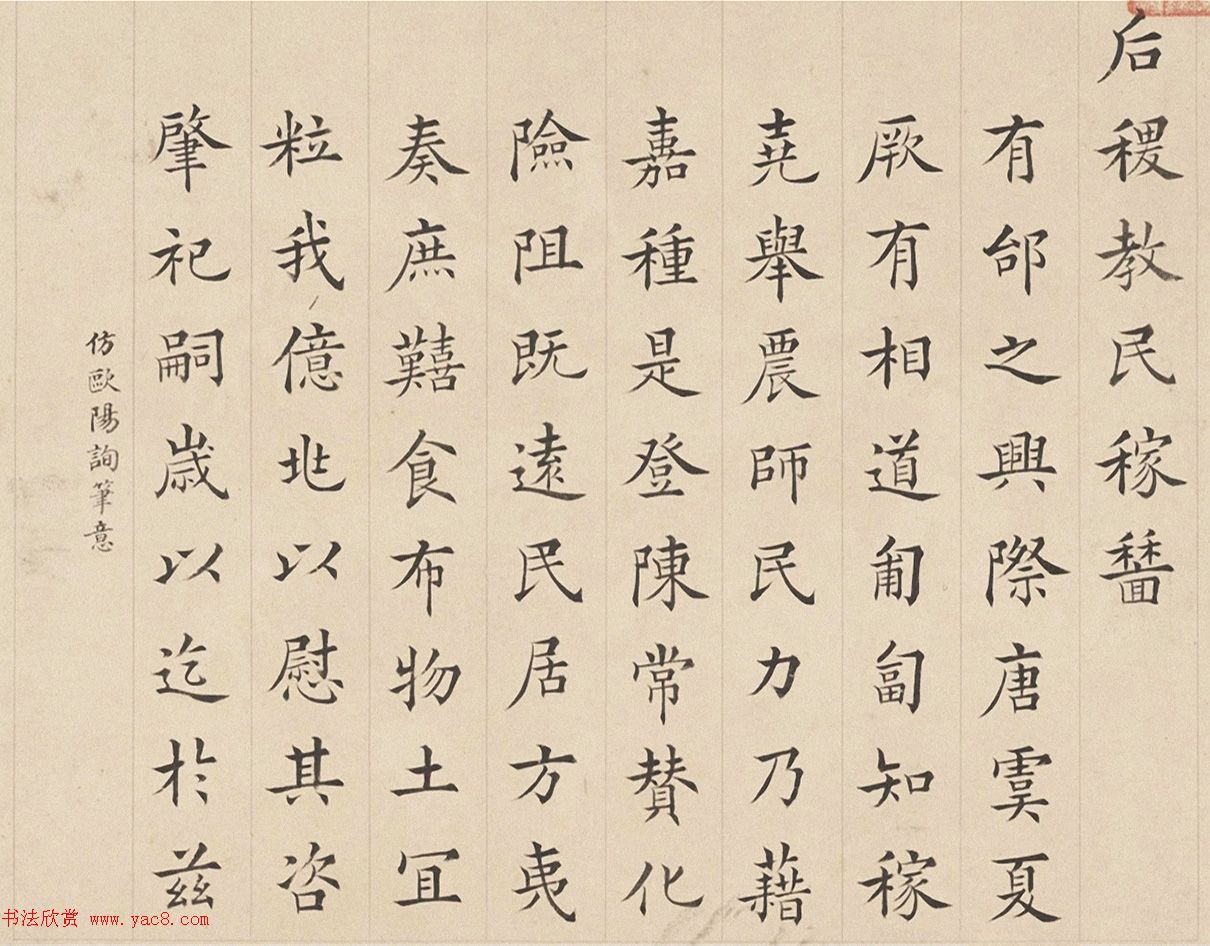 后稷教民稼穡
有邰之興際唐虞夏
厥有相道匍匐知稼
堯舉農師民力乃藉
嘉種是登陳常贊化
險阻既遠民居方夷
奏庶囏食布物土宜
粒我億兆以慰其咨
肇祀嗣歲以迄於茲
仿歐陽詢筆意
书法欣赏 www.yac8.com